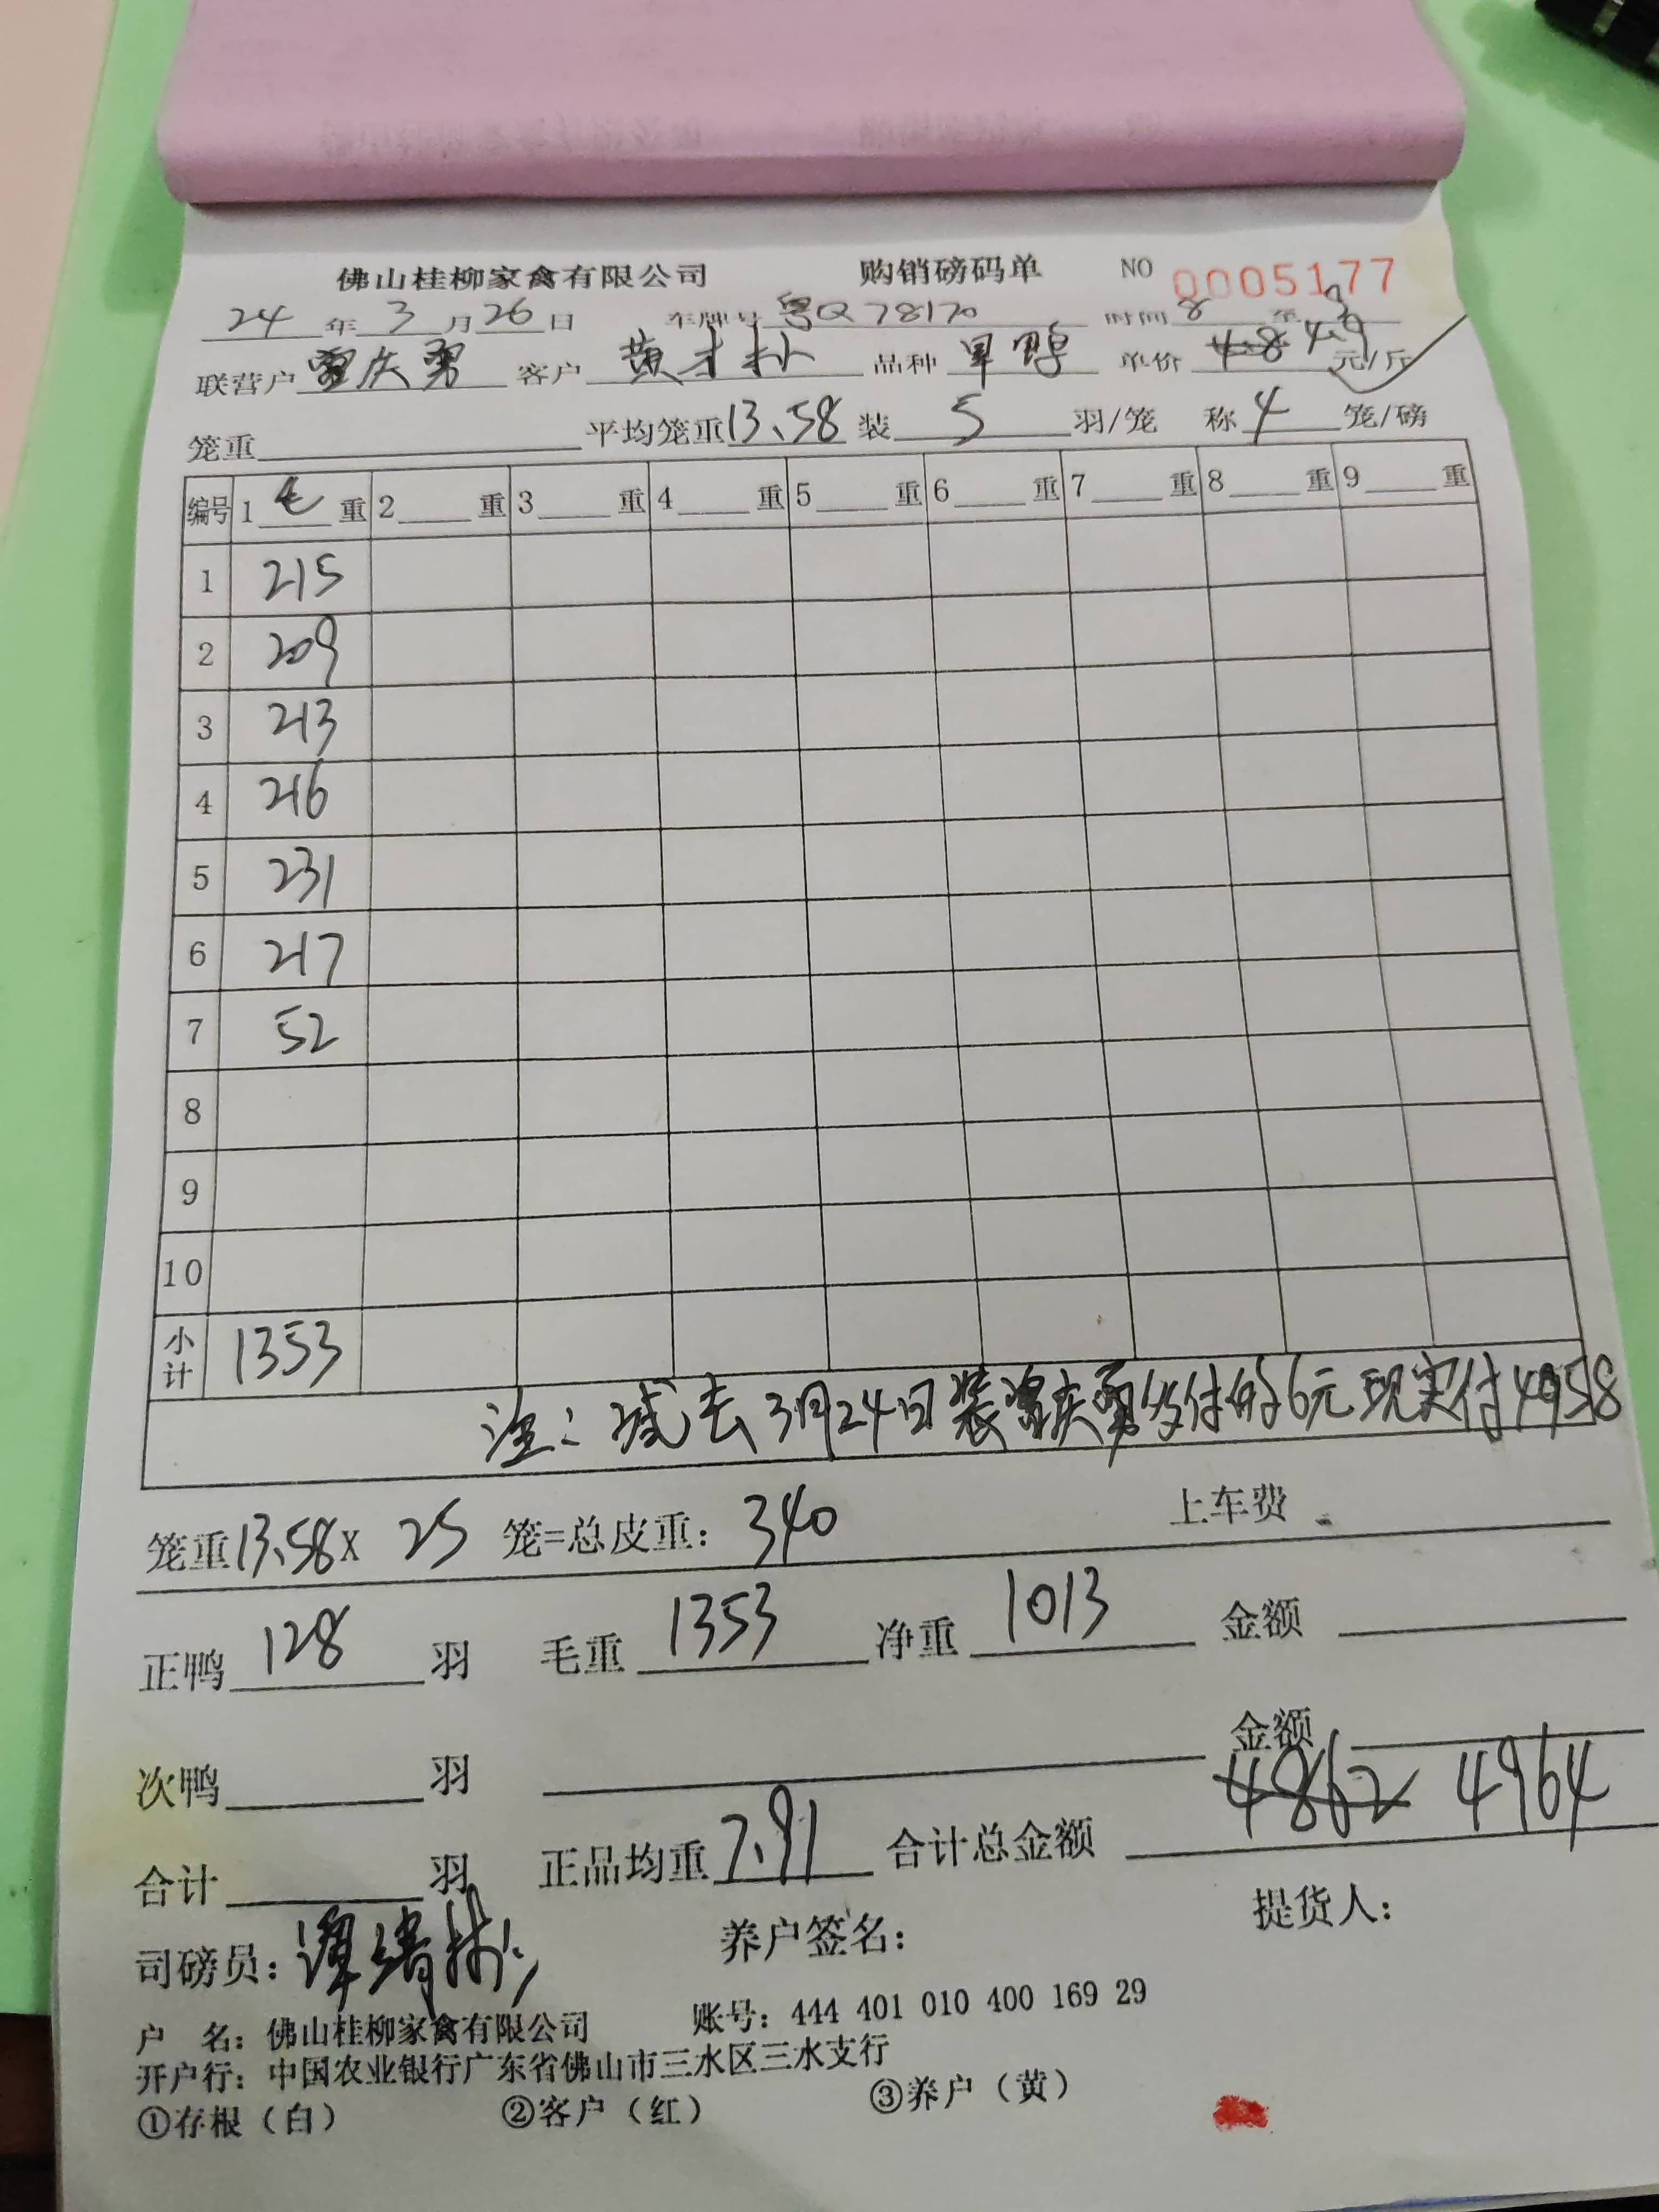 佛山桂柳家禽有限公司 购销磅码单 NO 0005177
24年3月26日 车牌号 粤Q78170 时间 8 至 9
联营户 庆勇 客户 黄才 品种 单价 4.8 4.9 元/斤
笼重 平均笼重 13.58 装 5 羽/笼 称 4 笼/磅
编号 1 重 2 重 3 重 4 重 5 重 6 重 7 重 8 重 9 重
1 215
2 209
3 213
4 216
5 231
6 217
7 52
8
9
10
小计 1353
注：减去3月24日装庆勇付的6元现实付4958
笼重13.58x 25 笼=总皮重：340 上车费
正鸭 128 羽 毛重 1353 净重 1013 金额
次鸭 羽 金额
4862 4964
合计 羽 正品均重 7.91 合计总金额
司磅员：谭 养户签名： 提货人：
户 名：佛山桂柳家禽有限公司 账号：444 401 010 400 169 29
开户行：中国农业银行广东省佛山市三水区三水支行
①存根（白） ②客户（红） ③养户（黄）